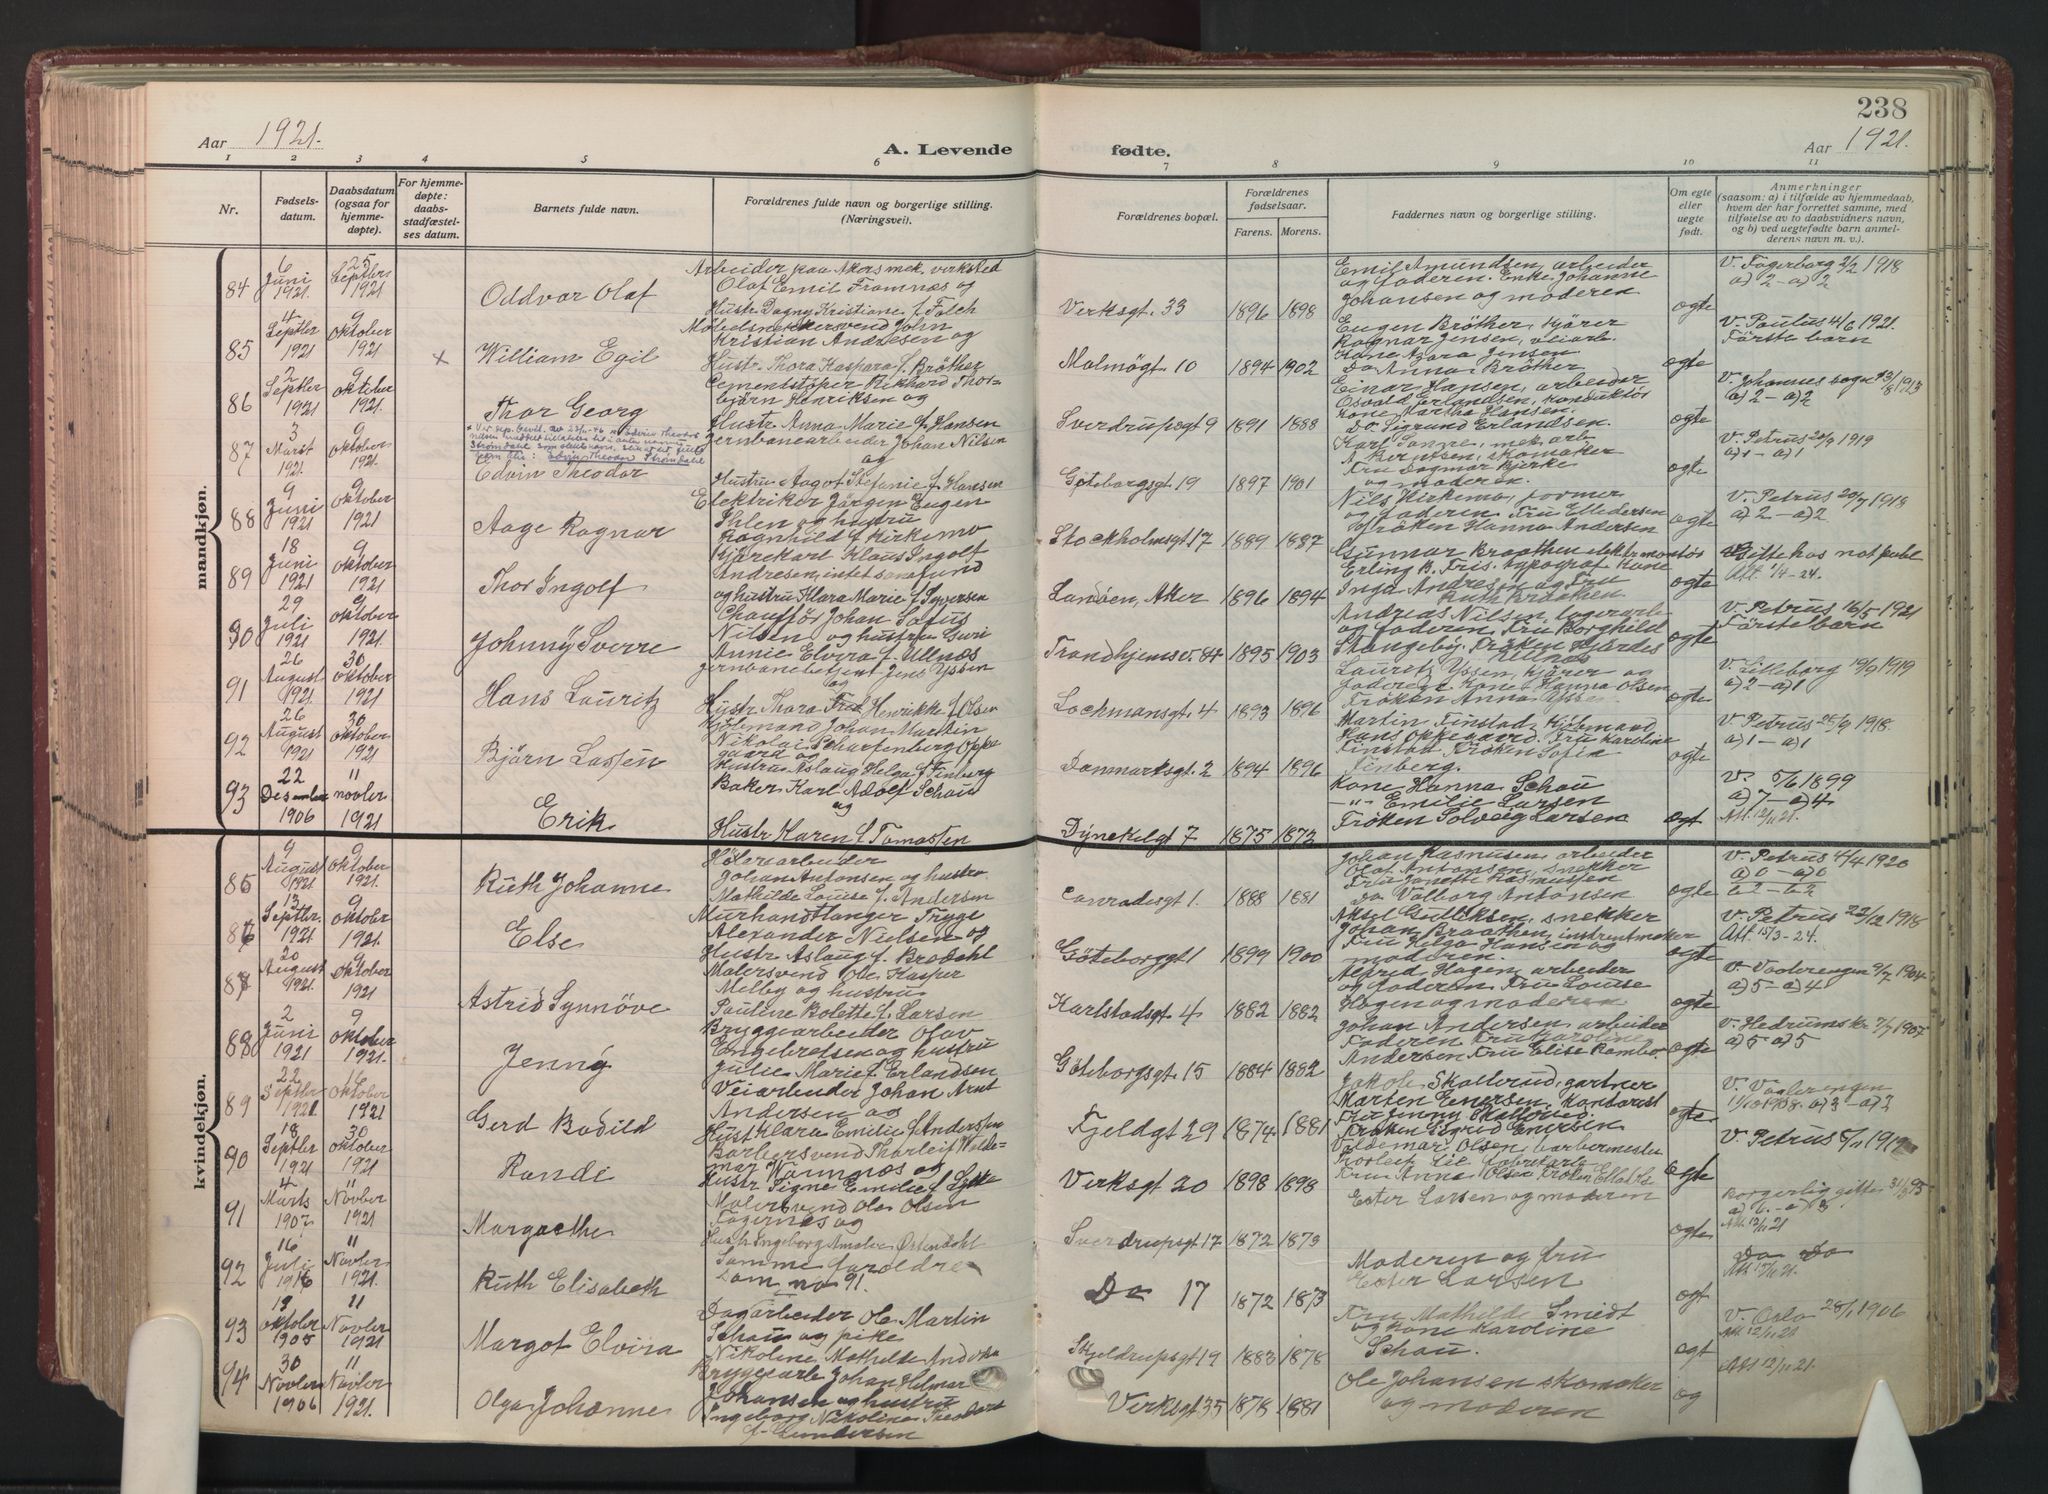 238
Aar 1921.
A. Levende
fødte.
Aar 1921.
1 2 3 4 5 6 7 8 9 10 11
Nr.
Fødsels-
datum.
Daabsdatum
(ogsaa for
hjemme-
døpte).
For hjemme-
døpte:
daabs-
stadfæstel-
ses datum.
Barnets fulde navn.
Forældrenes fulde navn og borgerlige stilling.
(Næringsvei).
Forældrenes bopæl.
Forældrenes
fødselsaar.
Farens. Morens.
Faddernes navn og borgerlige stilling.
Om egte
eller
uegte
født.
Anmerkninger
(saasom: a) i tilfælde av hjemmedaab,
hvem der har forrettet samme, med
tilføielse av to daabsvidners navn,
og b) ved uegtefødte barn anmel-
derens navn m. v.).
mandkjøn.
84
6 Juni 1921.
25 Septbr 1921
Oddvar Olaf
Arbeider paa Akers mek. verksted
Olaf Emil Framnæs og
Hustr. Dagny Kristiane f. Falch
Verksgt. 33
1896 1898
Emil Amundsen, arbeider
og faderen. Enke Johanne
Johansen og moderen
egte
V. Fagerborg 2/2 1918
a) 2 – a) 2
85
4 Septbr 1921
9 oktober 1921
x
William Egil
Møbelsnekkersvend John
Kristian Andresen og
Hustr. Thora Kaspara f. Brøther
Malmøgt 10
1894 1902
Eugen Brøther, kjører
Ragnar Jensen, veiarb.
Kone Jensen
Do Anna Brøther
egte
V. Paulus 4/6 1921.
Første barn
86
2 Septbr 1921
9 oktober 1921.
Thor Georg
Cementstøper Rikhard Thor-
bjørn Henriksen og
Hustr Anna Marie f. Hansen
Sverdrupsgt 9
1891 1888
Einar Hansen, arbeider
Osvald Erlandsen, konduktør
Kone Martha Hansen.
Do. Sigrund Erlandsen.
egte
V. Johannes
a) 2 – a) 2
87
3 Marst 1921.
9 oktober 1921
Edvin Theodor
Jernbanearbeider Johan Nilsen
og
Hustru Aagot Stefanie f. Hansen
Gøteborgsgt 19
1897 1901
mek. arb
A. Berntsen, skomaker
Fru Dagmar Bjerke
og moderen.
egte
V. Petrus 1919
a) 1 – a) 1
88
9 Juni 1921
9 oktober 1921
Aage Ragnar
Elektriker Jørgen Eugen
Ihlen og hustru
Ragnhild f. Kirkemo
Stockholmsgt 17
1889 1887
Nils Kirkemo, former
og faderen Fru Elledersen
Frøken Hanna Andersen
egte
V. Petrus 20/7 1918
a) 2 – a) 2
89
18 Juni 1921
9 oktober 1921
Thor Ingolf
Kjørekarl Klaus Ingolf
Andresen, intet samfund
og hustru Klara Marie f. Syversen
Landøen, Aker
1896 1894
Gunnar Braathen elektr montør
Erling B. Fris. typograf Kone
Inga Andresen og Fru
Ruth Braathen
egte
Gifte hos not publ
Att. 1/4 – 24.
90
29 Juli 1921
9 oktober 1921.
Johnny Sverre
Chauffør Johan Sofus
Nilsen og hustru Guri
Annie Elvira f. Ullnæs
Trondhjemsv. 84
1895 1903
Andreas Nilsen, lagerarb
og faderen Fru Borghild
Stangeby. Frøken Hjørdes
Ullnæs
egte
V. Petrus 16/5 1921
Førstebarn
91
26 August 1921.
30 oktober 1921
Hans Lauritz
Jernbanebetjent Jens Yssen
og
Hustr Thora Henrikke f. Olsen
Lochmansgt. 4
1893 1896
Lauritz Yssen, kjører og
faderen Kone Hanna Olsen
Frøken Anna Yssen
egte
V. Lilleborg 19/9 1919
a) 2 – a) 1
92
26 August 1921
30 oktober 1921
Bjørn Lassen
Kjølemand Johan Martin
Nikolai Scharfenberg Oppe-
gaard og
Hustru Aslaug Helga f. Finberg
Danmarksgt. 2
1894 1896
Martin Finstad, kjølemand
Hans Oppegaard. Fru Karoline
Finstad Frøken Sofie
Finberg.
egte
V. Petrus 1918.
a) 1 – a) 1
93
22 Desember 1906
11 novber 1921
Erik
Baker Karl Adolf Schau
og
Hustr Karen f. Tomassen
Dynekilgt 7
1875 1872
Kone Hanna Schau
–"– Emilie Larsen
Frøken Solveig Larsen
egt
V. 5/6 1899
a) 7 – a) 4
Att. 12/11 21.
kvindekjøn.
85
9 August 1921
9 oktober 1921.
Ruth Johanne
Johan Antonsen og hustru
Mathilde Louise f. Andersen
Conradesgt 1.
1888 1881
Johan Rasmusen, arbeider
Olaf Antonsen, snekker
Fru Janette Rasmussen
Do Valborg Antonsen
egte
V. Petrus 4/4 1920
a) 0 – a) 0
b 2 – b 2
86
13 Septbr. 1921
9 oktober 1921.
Else
Murhandtlanger Trygg
Alexander Nielsen og
Hustr Aslaug f. Brødahl
Gøteborggt 1
1899 1900
Aksel Gulliksen, snekker
Johan Braathen, instrentmaker
Fru Helga Hansen og
moderen.
egte
V. Petrus 22/12 1918
Att. 15/3 – 24.
87
20 August 1921.
9 oktober 1921.
Astrid Synnøve
Malersvend Ole Kasper
Melby og hustru
Pauline Bolette f. Larsen
Karlstadsgt. 4
1882 1882
Alfred Hagen arbeider
og faderen Fru Louise
Hagen og moderen
egte
V. Vaalerengen 9/7 1904
a) 5 – a) 4
88
2 Juni 1921
9 oktober 1921.
Jenny
Bryggearbeider Olav
Engebretsen og hustru
Julie Marie f. Erlandsen
Gøteborgsgt. 15
1884 1882
Johan Andersen, arbeider
Faderen Fru Karoline
Andersen Fru Elise Rambo.
egte
V. Hedrums kr 7/7 1907
a) 5 – a) 5
89
22 Septbr 1921.
16 oktober 1921
Gerd Bodild
Veiarbeider Johan Arnt
Andersen og
Hust Klara Emilie f. Anderssen
Fjeldgt 29
1874. 1881
Jakob Skollerud, gartner
Marten Enersen, Kontorist
Fru Jenny Skollerud.
Frøken Sigrid Enersen
egte
V. Vaalerengen
11/10 1908. a) 3 – a) 3
90
18 Septbr 1921
30 oktober 1921
Randi
Barbersvend Thorleif Walde-
mar Wiungnæs og
Hustr Signe Emilie f. Lykke
Verksgt 20
1898 1898
Valdemar Olsen, barbermester
Thorleif Lie
Fru Anna Olsen
Egte
V. Petrus
91
4 Marts 1907
11 Novber 1921
Margrethe
Malersvend Ole Olsen
Fagernæs og
Hustr Ingeborg Amalie Østendahl
Sverdrupsgt 17
1872 1873
Ester Larsen og moderen
egte
Borgerlig gifte 31/8 95
a) 6. – a) 3
Att. 12/11 21
92
16 Juli 1916
11 Novber 1921.
Ruth Elisabeth
Samme forældre
som no 91.
Do 17
1872 1873
Moderen og fru
Ester Larsen
egt
Do Do
Att 12/11 21.
93
19 oktober 1905
11 Novber 1921
Margot Elvira
Dagarbeider Ole Martin
Schau og pike
Nikoline Mathilde
Skjeldrupsgt 19
1883 1878
Fru Mathilde Smedt
og kone Karoline
Schau.
egt
V. Oslo 28/1 1906
Att 12/11 21
94
30 Novber 1906
11 Novber 1921.
Olga Johanne
Bryggearb Johan Hilmar
Johansen og hustru
Ingeborg Nikoline
f. Gundersen
Verksgt 35
1878 1881
Ole Johansen skomaker
og moderen
Att 12/11 21.